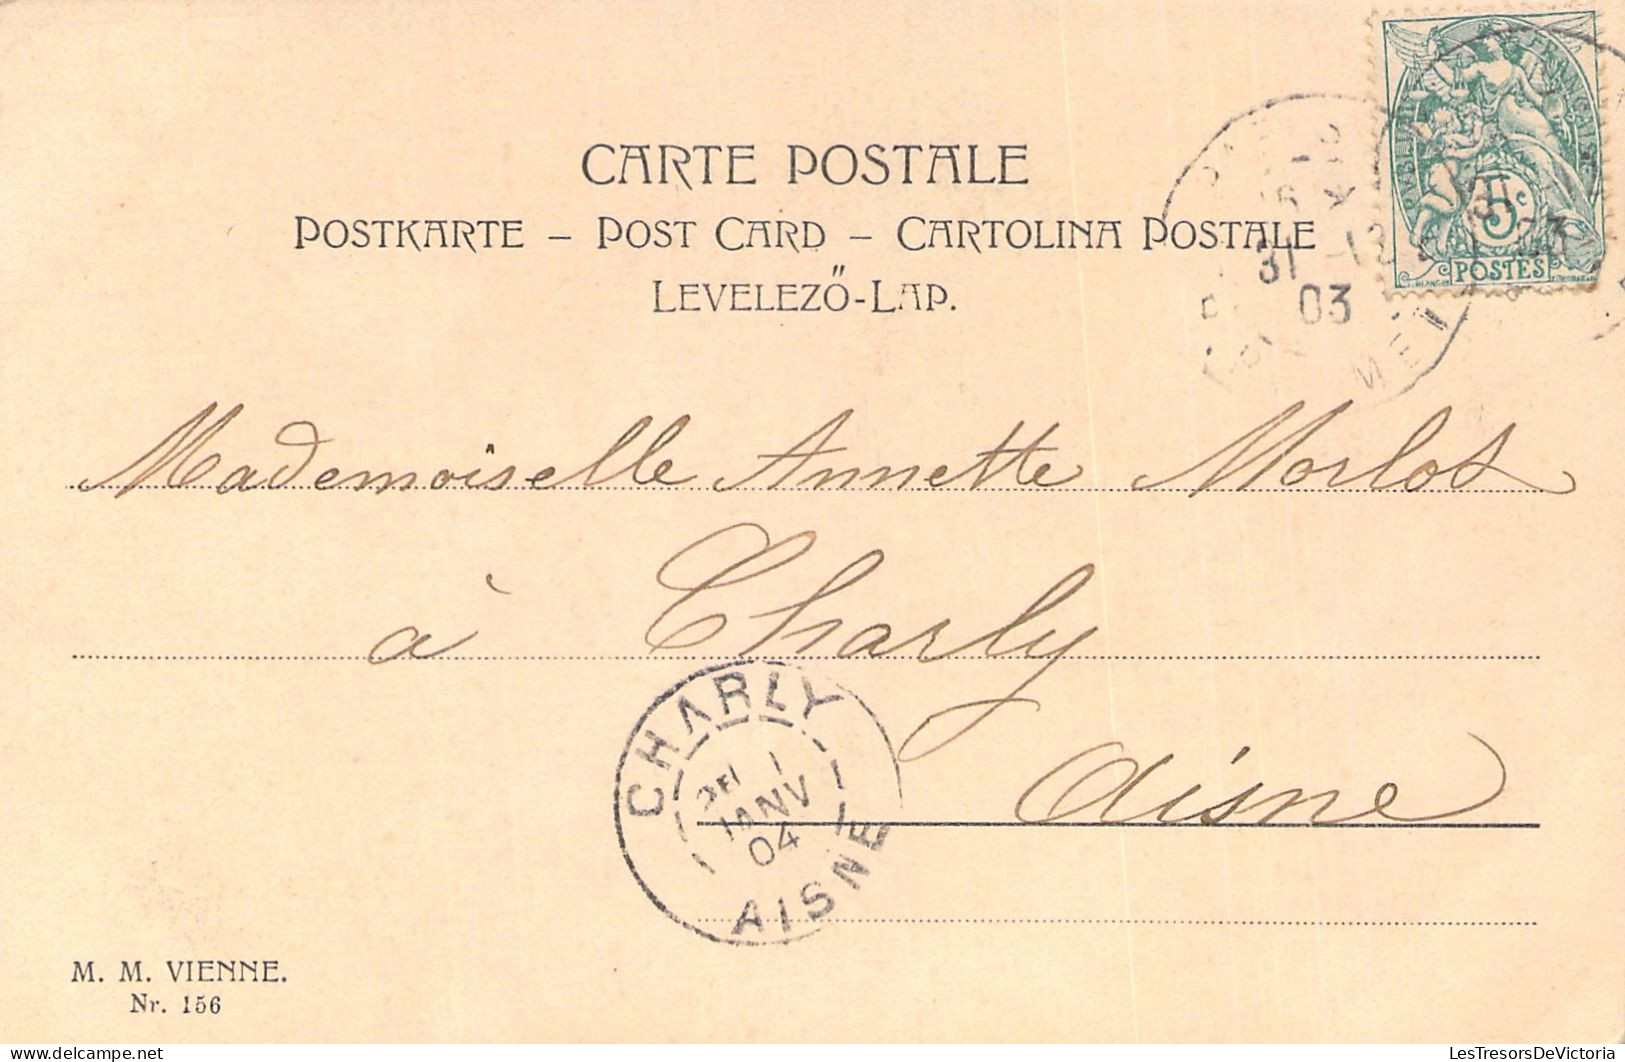 CARTE POSTALE
POSTKARTE – POST CARD – CARTOLINA POSTALE
LEVELEZŐ-LAP.
5c
POSTES
31 -12
03
Mademoiselle Annette Morlot
à Charly
Aisne
CHARLY
1
JANV
04
AISNE
M. M. VIENNE.
Nr. 156
LesTresorsDeVictoria